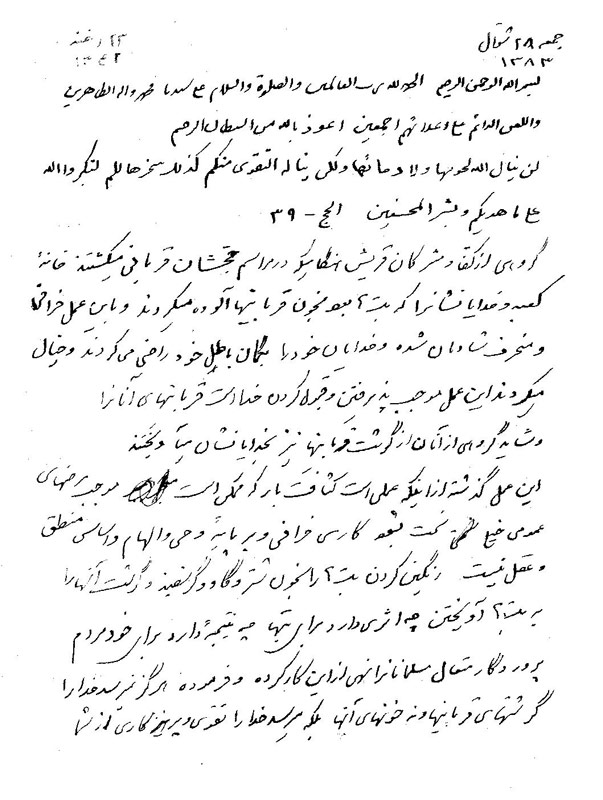 جمعه ۲۸ شوال
۱۳۸۳
۲۳ اسفند
۱۳۴۲
بسم الله الرحمن الرحیم الحمد لله رب العالمین والصلوة والسلام علی سیدنا محمد واله الطاهرین
واللعن الدائم علی اعدائهم اجمعین اعوذ بالله من الشیطان الرجیم
لن ینال الله لحومها ولا دمائها ولکن یناله التقوی منکم کذلک سخرها لکم لتکبروا الله
علی ما هدیکم وبشر المحسنین الحج - ۳۹
گروهی از کفار و مشرکان قریش هنگامیکه در مراسم حجشان قربانی میکشتند خانهٔ
کعبه و خدایانشانرا که بت‌ها بود بخون قربانیها آلوده میکردند و باین عمل خرافی
و منحرف شادمان شده و خدایان خود را بگمان باطل خود راضی می‌کردند و خیال
میکردند این عمل موجب پذیرفتن و قبول کردن خدا است قربانیهای آنانرا
و شاید گروهی از آنان از گوشت قربانیها نیز بخدایانشان میآویختند
این عمل گذشته از اینکه عملی است کثافت بار که ممکن است موجب مرضهای
عمومی خیلی سخت بشود کاری خرافی و بر پایهٔ وحی و الهام و اساس منطق
و عقل نیست رنگین کردن بت‌ها را بخون شتر و گاو و گوسفند و گوشت آنها را
به بت‌ها آویختن چه اثری دارد برای بتها چه نتیجهٔ دارد برای خود مردم
پروردگار متعال مسلمانانرا نهی از این کار کرده و فرموده هرگز نمیرسد خدا را
گوشتهای قربانیها و نه خونهای آنها بلکه میرسد خدا را تقوی و پرهیزکاری از شما